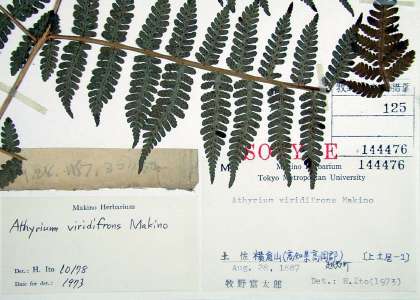 125
144476
SO Y E
144476
Makino Herbarium
Tokyo Metropolitan University
Athyrium viridifrons Makino
Makino Herbarium
Athyrium viridifrons Makino
土 佐 横倉山(高知県高岡郡 越知町) [上土居-1]
Det.: H. Ito 10/78
Aug. 28, 1887
Date for det.: 1973
牧野富太郎
Det.: H. Ito(1973)